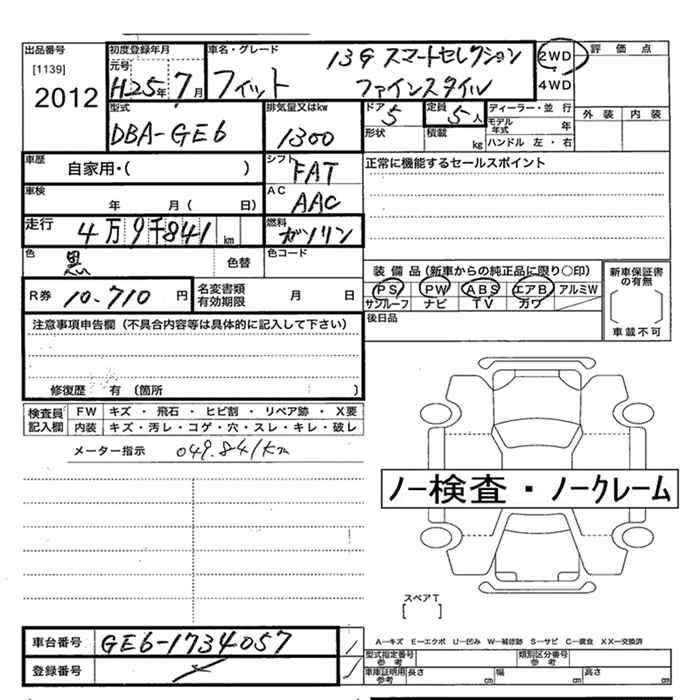 出品番号 初度登録年月 車名・グレード 13G スマートセレクション 2WD 評価点
[1139] 元号 H25年7月 フィット ファインスタイル 4WD
2012 外装 内装
型式 排気量又はkw ドア 定員 ディーラー・並行
DBA-GE6 1300 5 5人 モデル年式 年
形状 積載 kg ハンドル 左・右
車歴 シフト 正常に機能するセールスポイント
自家用・( ) FAT
車検 AC
年 月( 日) AAC
走行 4万9千841km 燃料 ガソリン
色 黒 色替 色コード
装備品(新車からの純正品に限り○印) 新車保証書の有無
R券 10.710円 名変書類有効期限 月 日 PS PW ABS エアB アルミW
サンルーフ ナビ TV 万ワ
注意事項申告欄(不具合内容等は具体的に記入して下さい) 後日品 車載不可
修復歴 有(箇所 )
検査員記入欄 FW キズ・飛石・ヒビ割・リペア跡・X要
内装 キズ・汚レ・コゲ・穴・スレ・キレ・破レ
メーター指示 049.841km
ノー検査・ノークレーム
スペアT
[ ]
車台番号 GE6-1734057 A―キズ E―エクボ U―凹み W―補修跡 S―サビ C―腐食 XX―交換済
型式指定番号 参考 類別区分番号 参考
登録番号 車庫証明用 参考 長さ cm 幅 cm 高さ cm